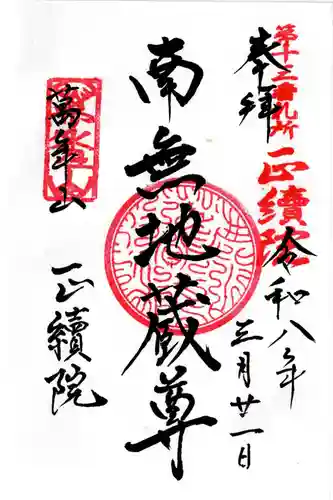 奉拝
第十三番札所
正續院
令和八年
三月廿一日
南無地蔵尊
萬年山
正續院